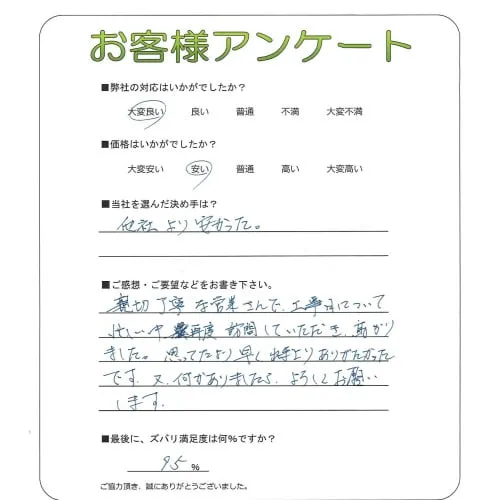 お客様アンケート
■弊社の対応はいかがでしたか?
大変良い 良い 普通 不満 大変不満
■価格はいかがでしたか?
大変安い 安い 普通 高い 大変高い
■当社を選んだ決め手は?
他社より安かった。
■ご感想・ご要望などをお書き下さい。
親切丁寧な営業さんで、工事についても
忙しい中 再度訪問していただき、助かり
ました。思ってたより早く
ありがたかった
です。又、何かありましたら、よろしくお願い
します。
■最後に、ズバリ満足度は何%ですか?
95 %
ご協力頂き、誠にありがとうございました。